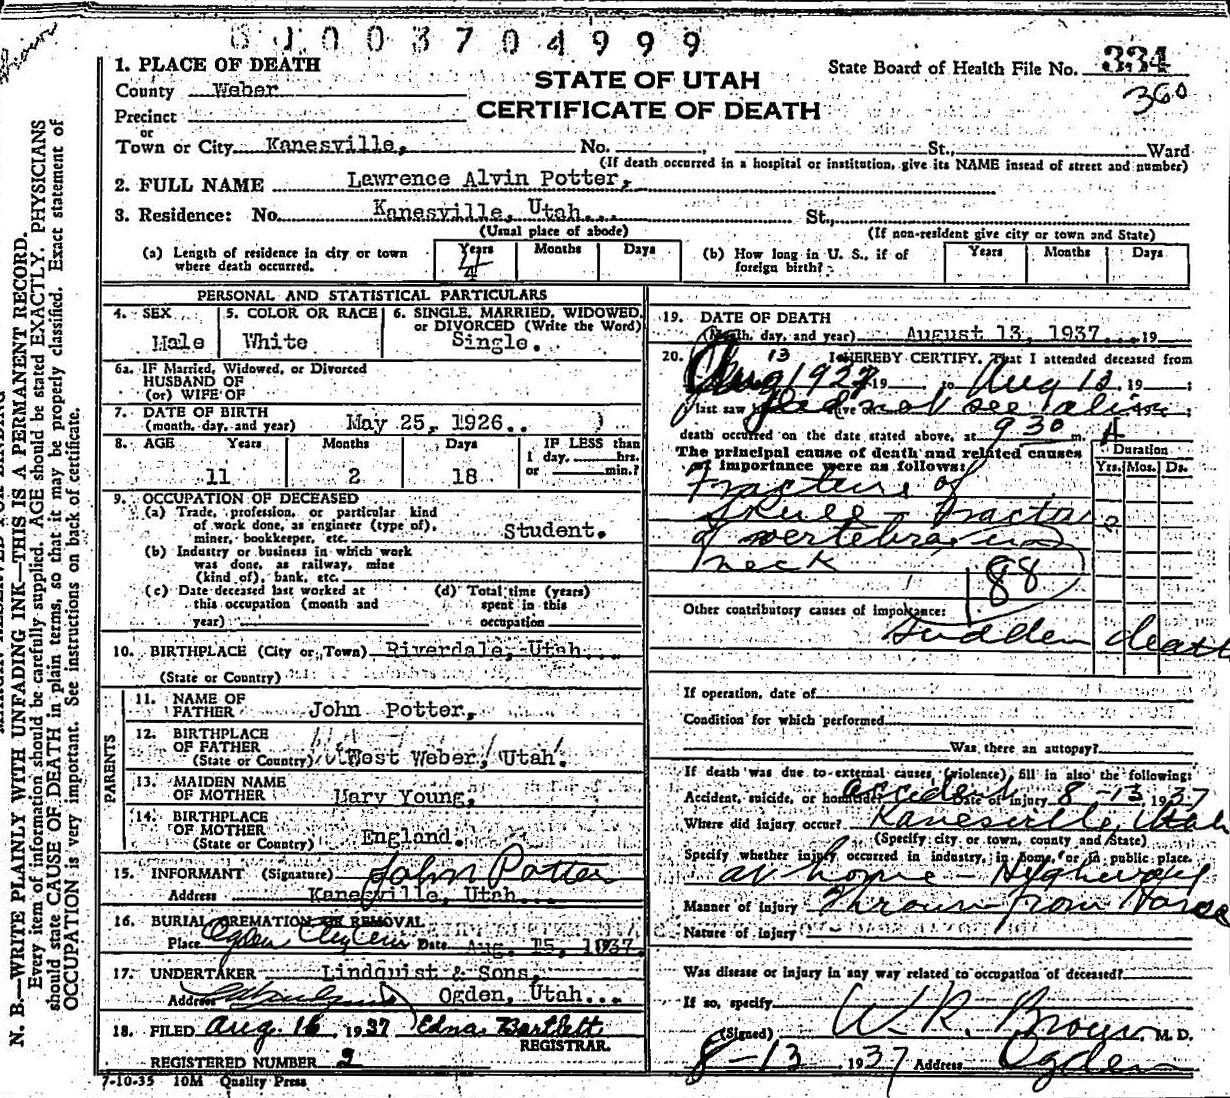 81003704999
1. PLACE OF DEATH
STATE OF UTAH
CERTIFICATE OF DEATH
State Board of Health File No. 334
360
County Weber
Precinct
or
Town or City Kanesville, No. St., Ward
(If death occurred in a hospital or institution, give its NAME insead of street and number)
2. FULL NAME Lawrence Alvin Potter,
3. Residence: No. Kanesville, Utah... St.,
(Usual place of abode) (If non-resident give city or town and State)
(a) Length of residence in city or town where death occurred. Years Months Days
(b) How long in U. S., if of foreign birth? Years Months Days
PERSONAL AND STATISTICAL PARTICULARS
4. SEX Male
5. COLOR OR RACE White
6. SINGLE, MARRIED, WIDOWED, or DIVORCED (Write the Word) Single.
6a. IF Married, Widowed, or Divorced
HUSBAND OF
(or) WIFE OF
7. DATE OF BIRTH
(month, day, and year) May 25, 1926..
8. AGE Years Months Days IF LESS than
1 day, hrs.
or min.?
11 2 18
9. OCCUPATION OF DECEASED
(a) Trade, profession, or particular kind
of work done, as engineer (type of),
miner, bookkeeper, etc. Student.
(b) Industry or business in which work
was done, as railway, mine
(kind of), bank, etc.
(c) Date deceased last worked at
this occupation (month and
year)
(d) Total time (years)
spent in this
occupation
10. BIRTHPLACE (City or Town) Riverdale, Utah...
(State or Country)
PARENTS
11. NAME OF
FATHER John Potter,
12. BIRTHPLACE
OF FATHER
(State or Country) West Weber, Utah.
13. MAIDEN NAME
OF MOTHER Mary Young,
14. BIRTHPLACE
OF MOTHER
(State or Country) England.
15. INFORMANT (Signature) John Potter
Address Kanesville, Utah...
16. BURIAL, CREMATION OR REMOVAL
Place Ogden Date Aug. 15, 1937.
17. UNDERTAKER Lindquist & Sons,
Address Ogden, Utah...
18. FILED Aug. 16, 1937 Edna Bartlett
REGISTRAR.
REGISTERED NUMBER 2
7-10-35 10M Quality Press
19. DATE OF DEATH
(Month, day, and year) August 13, 1937... 19
20. I HEREBY CERTIFY, That I attended deceased from
Aug 13 1937 19 to Aug 13, 19 ;
I last saw did not see alive ;
death occurred on the date stated above, at 9 30 m. A
The principal cause of death and related causes
of importance were as follows:
Duration
Yrs. Mos. Ds.
Fracture of
Skull - Fracture
of vertebra in
neck
188
Other contributory causes of importance:
Sudden death
If operation, date of
Condition for which performed
Was there an autopsy?
If death was due to external causes (violence) fill in also the following:
Accident, suicide, or homicide accident Date of injury 8-13 1937
Where did injury occur? Kanesville, Utah
(Specify city or town, county and State)
Specify whether injury occurred in industry, in home, or in public place.
at home - Highway
Manner of injury Thrown from Horse
Nature of injury
Was disease or injury in any way related to occupation of deceased?
If so, specify
(Signed) W. R. Brown M. D.
8-13 1937 Address Ogden
N. B.—WRITE PLAINLY WITH UNFADING INK—THIS IS A PERMANENT RECORD.
Every item of information should be carefully supplied. AGE should be stated EXACTLY. PHYSICIANS
should state CAUSE OF DEATH in plain terms, so that it may be properly classified. Exact statement of
OCCUPATION is very important. See instructions on back of certificate.